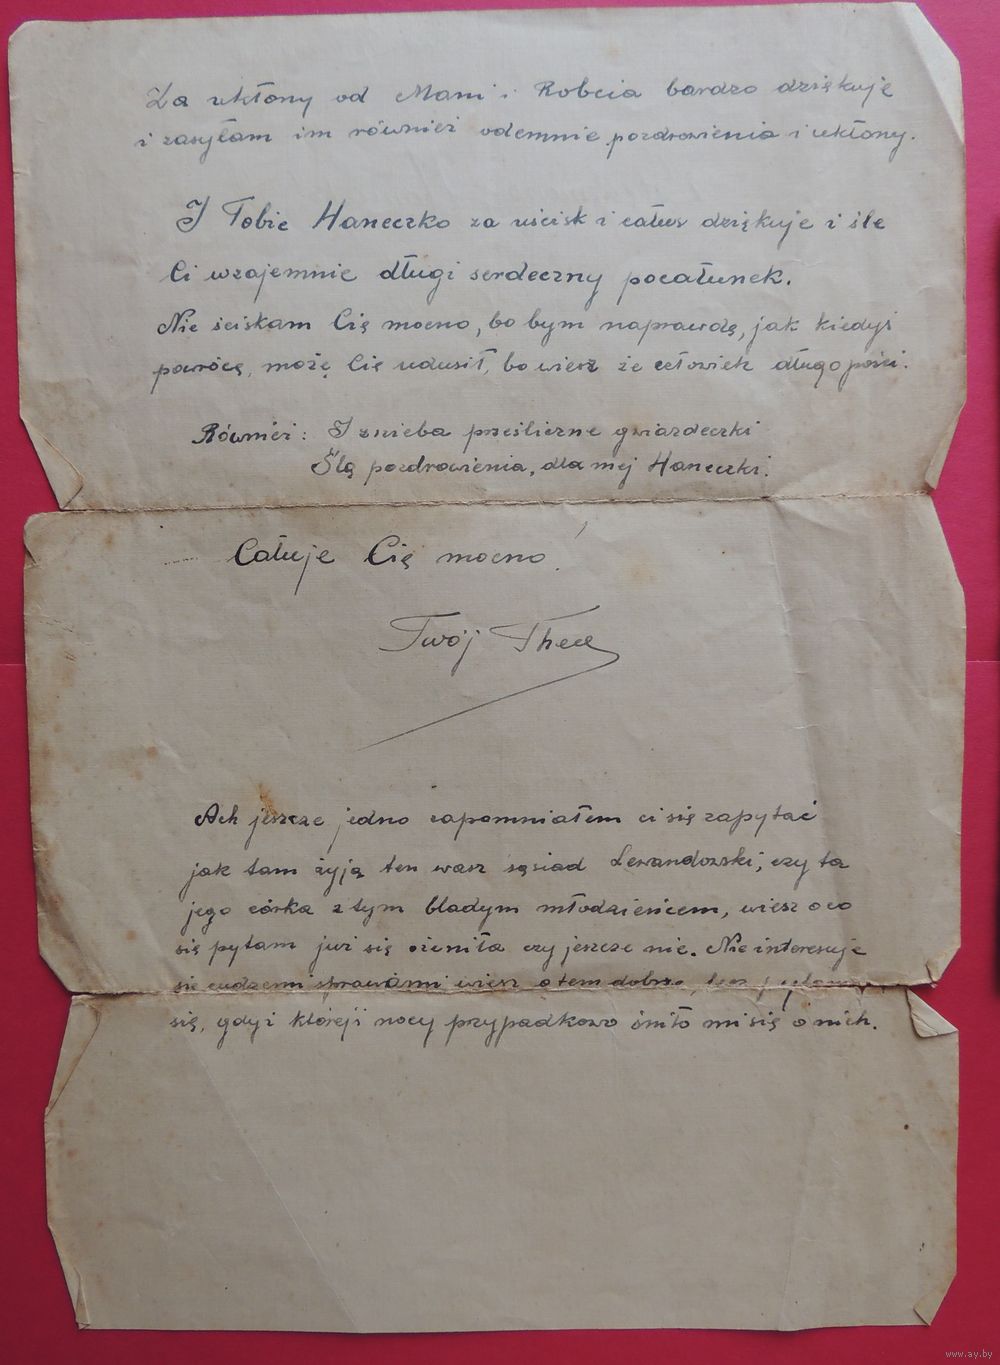 Za ukłony od Mami i Robcia bardzo dziękuję
i zasyłam im również odemnie pozdrowienia i ukłony.
I Tobie Haneczko za uścisk i całus dziękuje i śle
Ci wzajemnie długi serdeczny pocałunek.
Nie ściskam Cię mocno, bo bym naprawdę, jak kiedyś
powrócę, możę Cię udusił, bo wiesz że człowiek długo pości.
Również: I z nieba prześliczne gwiazdeczki
Ślą pozdrowienia, dla mej Haneczki.
Całuje Cię mocno!
Twój
Ach jeszcze jedno zapomniałem ci się zapytać
jak tam żyją ten wasz sąsiad Lewandowski, czy ta
jego córka z tym bladym młodzieńcem, wiesz o co
się pytam już się ożeniła czy jeszcze nie. Nie interesuje
się cudzemi sprawami wiesz o tem dobrze, lecz
się, gdyż którejś nocy przypadkowo śniło mi się o nich.
www.ay.by